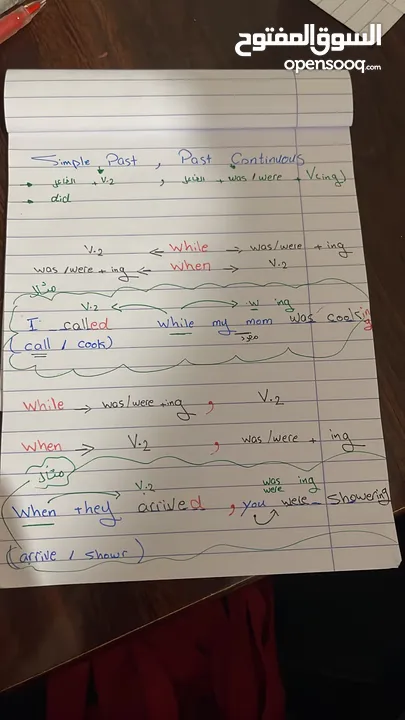 السوق المفتوح
opensooq.com
Simple Past , Past Continuous
→ الفاعل + V.2 , الفاعل + was/were + V(ing)
→ did
V.2 ← While → was/were + ing
was/were + ing ← When → V.2
مثال
V.2 w ing
I called while my mom was cooking
(call / cook) مفرد
While → was/were +ing , V.2
When → V.2 , was/were + ing
مثال
V.2 was were ing
When they arrived , you were showering
(arrive / showr)